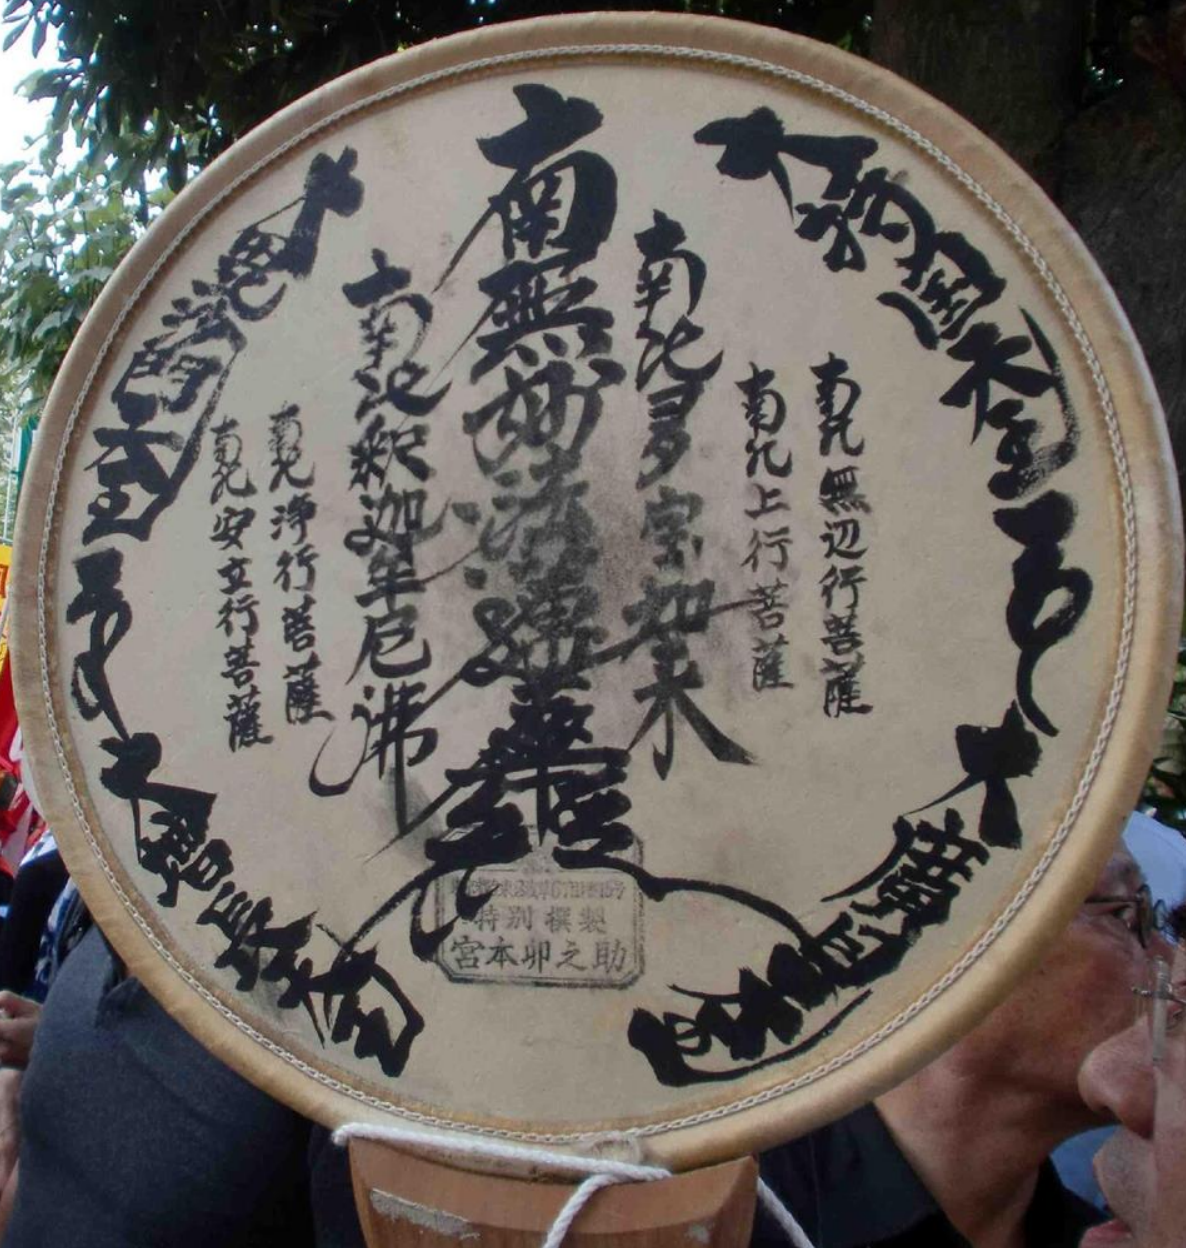 大持国天王
南無無辺行菩薩
南無上行菩薩
南無多宝如来
南無妙法蓮華経
南無釈迦牟尼佛
南無浄行菩薩
南無安立行菩薩
大廣目天王
大毘沙門天王
大増長天王
特別撰製
宮本卯之助